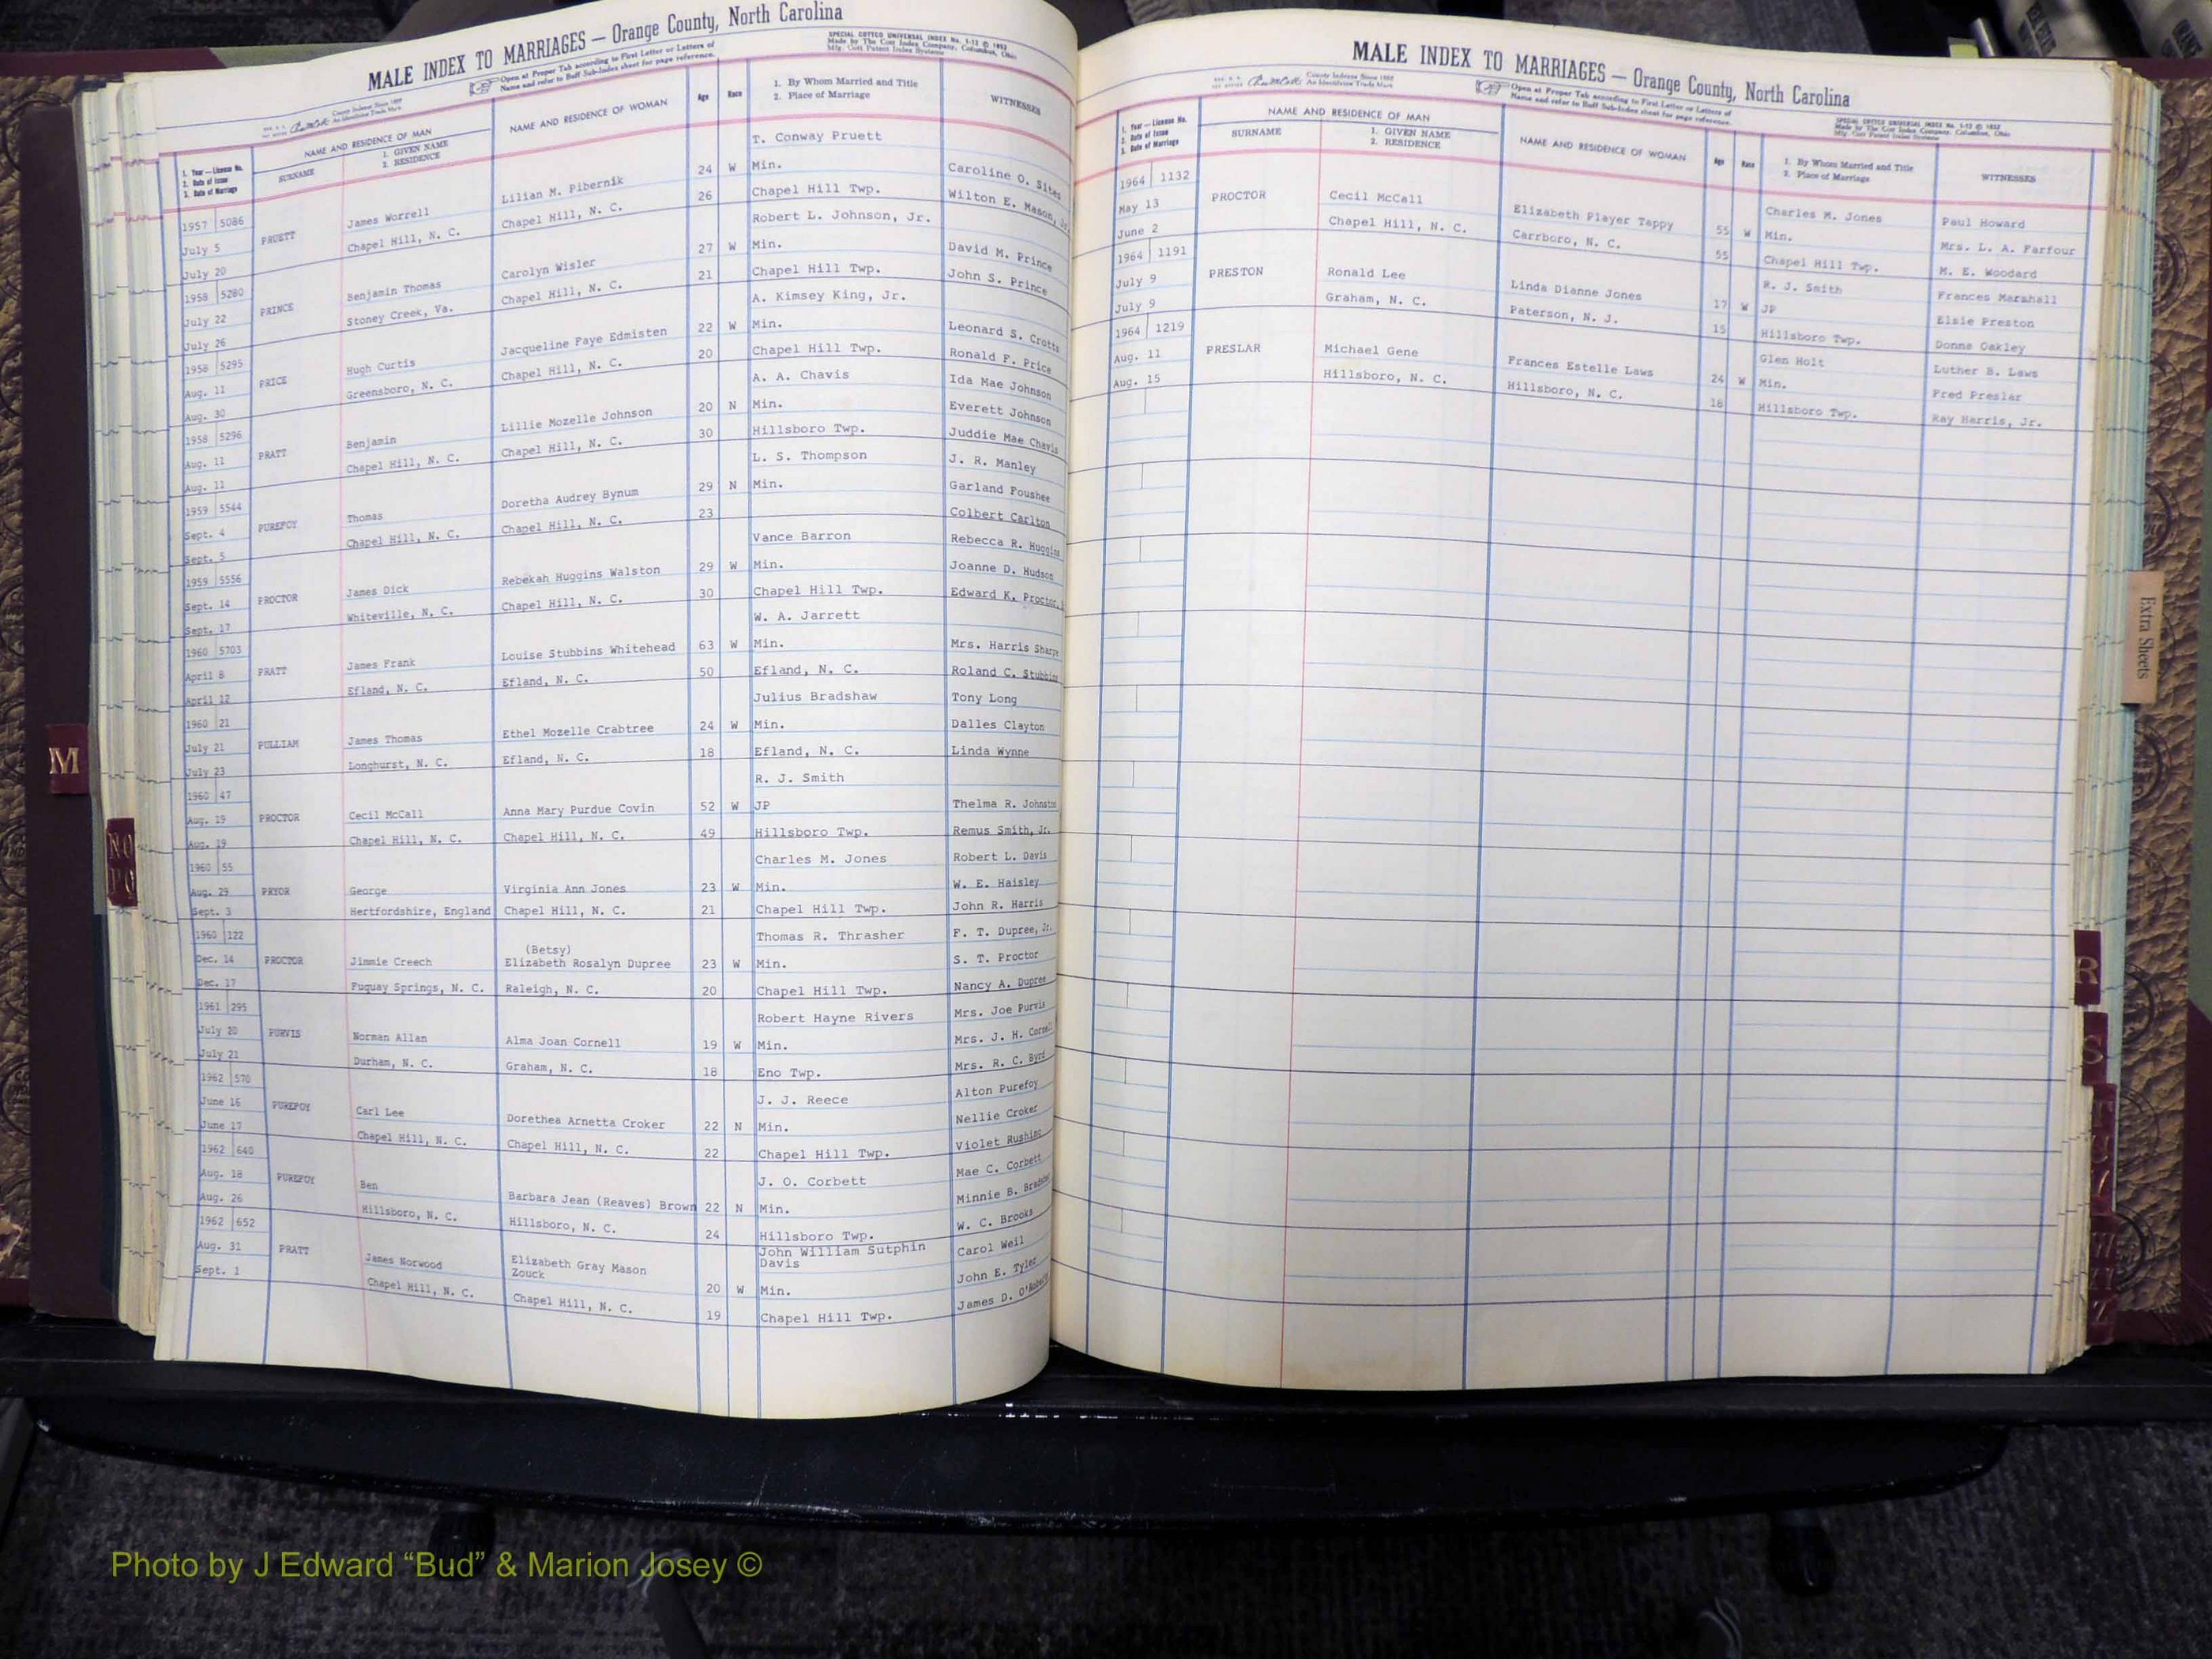 MALE INDEX TO MARRIAGES — Orange County, North Carolina
Open at Proper Tab according to First Letter or Letters of
Name and refer to Buff Sub-Index sheet for page reference.
SPECIAL COTTCO UNIVERSAL INDEX No. 1-12 © 1952
Made by The Cott Index Company, Columbus, Ohio
Mfg. Cott Patent Index Systems
County Indexes Since 1888
An Identifying Trade Mark
1. Year — License No.
2. Date of Issue
3. Date of Marriage
NAME AND RESIDENCE OF MAN
SURNAME
1. GIVEN NAME
2. RESIDENCE
NAME AND RESIDENCE OF WOMAN
Age
Race
1. By Whom Married and Title
2. Place of Marriage
WITNESSES
T. Conway Pruett
1957 5086 James Worrell Lilian M. Pibernik 24 W Min. Caroline O. Sites
July 5 PRUETT Chapel Hill, N. C. Chapel Hill, N. C. 26 Chapel Hill Twp. Wilton E. Mason, Jr.
July 20 Robert L. Johnson, Jr.
1958 5280 Benjamin Thomas Carolyn Wisler 27 W Min. David M. Prince
July 22 PRINCE Stoney Creek, Va. Chapel Hill, N. C. 21 Chapel Hill Twp. John S. Prince
July 26 A. Kimsey King, Jr.
1958 5295 Hugh Curtis Jacqueline Faye Edmisten 22 W Min. Leonard S. Crotts
Aug. 11 PRICE Greensboro, N. C. Chapel Hill, N. C. 20 Chapel Hill Twp. Ronald F. Price
Aug. 30 A. A. Chavis Ida Mae Johnson
1958 5296 Benjamin Lillie Mozelle Johnson 20 N Min. Everett Johnson
Aug. 11 PRATT Chapel Hill, N. C. Chapel Hill, N. C. 30 Hillsboro Twp. Juddie Mae Chavis
Aug. 11 L. S. Thompson J. R. Manley
1959 5544 Thomas Doretha Audrey Bynum 29 N Min. Garland Foushee
Sept. 4 PUREFOY Chapel Hill, N. C. Chapel Hill, N. C. 23 Colbert Carlton
Sept. 5 Vance Barron Rebecca R. Huggins
1959 5556 James Dick Rebekah Huggins Walston 29 W Min. Joanne D. Hudson
Sept. 14 PROCTOR Whiteville, N. C. Chapel Hill, N. C. 30 Chapel Hill Twp. Edward K. Proctor,
Sept. 17 W. A. Jarrett
1960 5703 James Frank Louise Stubbins Whitehead 63 W Min. Mrs. Harris Sharpe
April 8 PRATT Efland, N. C. Efland, N. C. 50 Efland, N. C. Roland C. Stubbins
April 12 Julius Bradshaw Tony Long
1960 21 James Thomas Ethel Mozelle Crabtree 24 W Min. Dalles Clayton
July 21 PULLIAM Longhurst, N. C. Efland, N. C. 18 Efland, N. C. Linda Wynne
July 23 R. J. Smith
1960 47 Cecil McCall Anna Mary Purdue Covin 52 W JP Thelma R. Johnston
Aug. 19 PROCTOR Chapel Hill, N. C. Chapel Hill, N. C. 49 Hillsboro Twp. Remus Smith, Jr.
Aug. 19 Charles M. Jones Robert L. Davis
1960 55 George Virginia Ann Jones 23 W Min. W. E. Haisley
Aug. 29 PRYOR Hertfordshire, England Chapel Hill, N. C. 21 Chapel Hill Twp. John R. Harris
Sept. 3 Thomas R. Thrasher F. T. Dupree, Jr.
(Betsy)
1960 122 Jimmie Creech Elizabeth Rosalyn Dupree 23 W Min. S. T. Proctor
Dec. 14 PROCTOR Fuquay Springs, N. C. Raleigh, N. C. 20 Chapel Hill Twp. Nancy A. Dupree
Dec. 17 Robert Hayne Rivers Mrs. Joe Purvis
1961 295 Norman Allan Alma Joan Cornell 19 W Min. Mrs. J. H.
July 20 PURVIS Durham, N. C. Graham, N. C. 18 Eno Twp. Mrs. R. C. Byrd
July 21 J. J. Reece Alton Purefoy
1962 570 Carl Lee Dorethea Arnetta Croker 22 N Min. Nellie Croker
June 16 PUREFOY Chapel Hill, N. C. Chapel Hill, N. C. 22 Chapel Hill Twp. Violet Rushing
June 17 J. O. Corbett Mae C. Corbett
1962 640 Ben Barbara Jean (Reaves) Brown 22 N Min. Minnie B. Bradsher
Aug. 18 PUREFOY Hillsboro, N. C. Hillsboro, N. C. 24 Hillsboro Twp. W. C. Brooks
Aug. 26 John William Sutphin Carol Weil
Davis
1962 652 James Norwood Elizabeth Gray Mason
Zouck 20 W Min. John E. Tyler
Aug. 31 PRATT Chapel Hill, N. C. Chapel Hill, N. C. 19 Chapel Hill Twp. James D.
Sept. 1
MALE INDEX TO MARRIAGES — Orange County, North Carolina
County Indexes Since 1888
An Identifying Trade Mark
Open at Proper Tab according to First Letter or Letters of
Name and refer to Buff Sub-Index sheet for page reference.
SPECIAL COTTCO UNIVERSAL INDEX No. 1-12 © 1952
Made by The Cott Index Company, Columbus, Ohio
Mfg. Cott Patent Index Systems
1. Year — License No.
2. Date of Issue
3. Date of Marriage
NAME AND RESIDENCE OF MAN
SURNAME
1. GIVEN NAME
2. RESIDENCE
NAME AND RESIDENCE OF WOMAN
Age
Race
1. By Whom Married and Title
2. Place of Marriage
WITNESSES
1964 1132 Charles M. Jones Paul Howard
May 13 PROCTOR Cecil McCall Elizabeth Player Tappy 55 W Min. Mrs. L. A. Farfour
June 2 Chapel Hill, N. C. Carrboro, N. C. 55 Chapel Hill Twp. M. E. Woodard
1964 1191 R. J. Smith Frances Marshall
July 9 PRESTON Ronald Lee Linda Dianne Jones 17 W JP Elsie Preston
July 9 Graham, N. C. Paterson, N. J. 15 Hillsboro Twp. Donna Oakley
1964 1219 Glen Holt Luther B. Laws
Aug. 11 PRESLAR Michael Gene Frances Estelle Laws 24 W Min. Fred Preslar
Aug. 15 Hillsboro, N. C. Hillsboro, N. C. 18 Hillsboro Twp. Ray Harris, Jr.
M
NO
PQ
Extra Sheets
R
S
Photo by J Edward “Bud” & Marion Josey ©